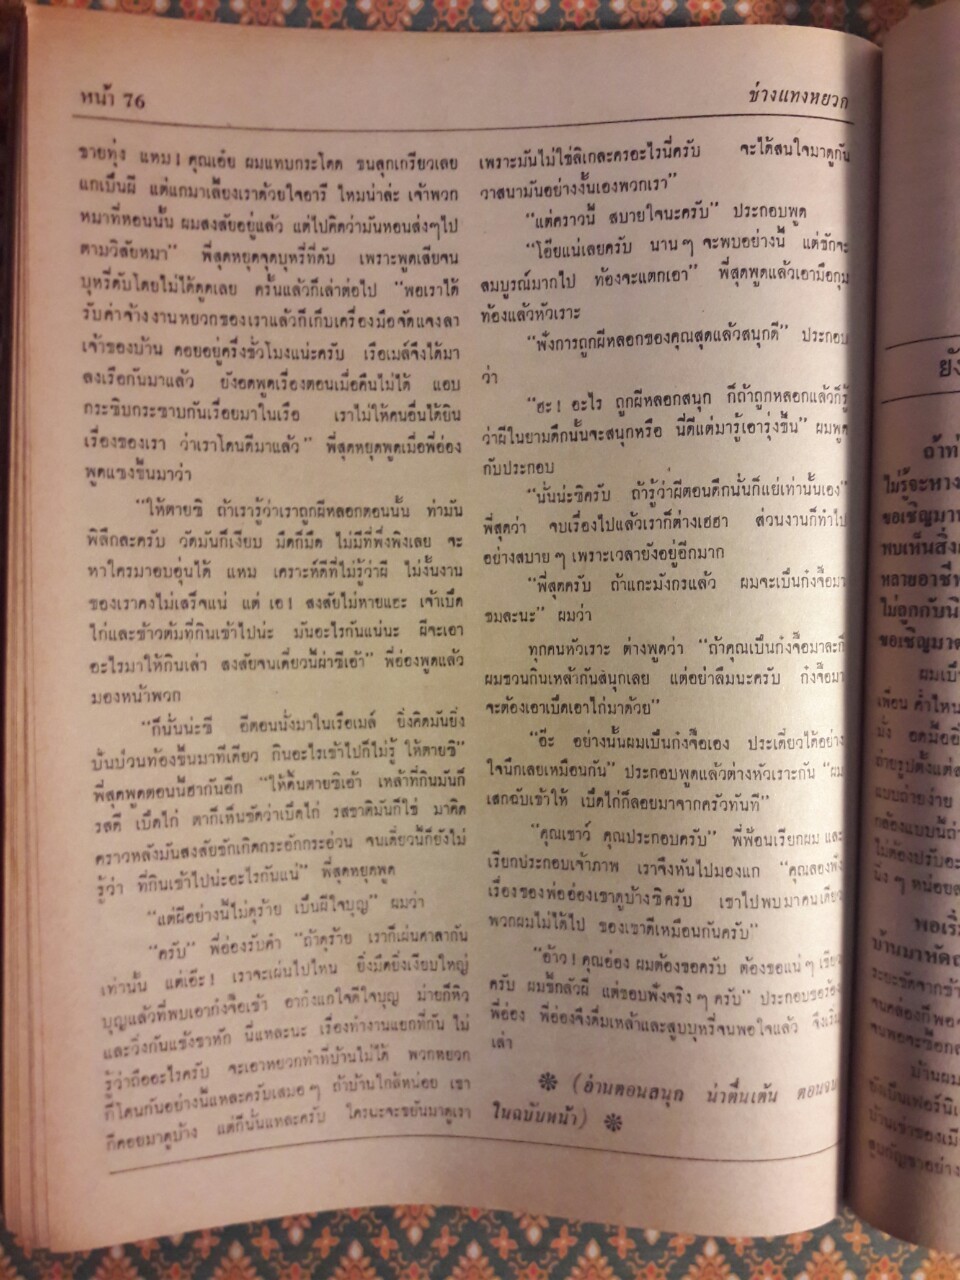 หน้า 76
ช่างแทงหยวก
ชายทุ่ง แหม! คุณเอ๋ย ผมแทบกระโดด ขนลุกเกรียวเลย
แกเป็นผี แต่แกมาเลี้ยงเราด้วยใจอารี ไหมน่าล่ะ เจ้าพวก
หมาที่หอนนั้น ผมสงสัยอยู่แล้ว แต่ไปคิดว่ามันหอนส่งๆไป
ตามวิสัยหมา” พี่สุดหยุดจุดบุหรี่ที่ดับ เพราะพูดเสียจน
บุหรี่ดับโดยไม่ได้ดูดเลย ครั้นแล้วก็เล่าต่อไป “พอเราได้
รับค่าจ้างงานหยวกของเราแล้วก็เก็บเครื่องมือจัดแจงลา
เจ้าของบ้าน คอยอยู่ครึ่งชั่วโมงแน่ะครับ เรือเมล์จึงได้มา
ลงเรือกันมาแล้ว ยังอดพูดเรื่องตอนเมื่อคืนไม่ได้ แอบ
กระซิบกระซาบกันเรื่อยมาในเรือ เราไม่ให้คนอื่นได้ยิน
เรื่องของเรา ว่าเราโดนดีมาแล้ว” พี่สุดหยุดพูดเมื่อพี่อ่อง
พูดแซงขึ้นมาว่า
“ให้ตายซิ ถ้าเรารู้ว่าเราถูกผีหลอกตอนนั้น ท่ามัน
พิลึกละครับ วัดมันก็เงียบ มืดก็มืด ไม่มีที่พึ่งพิงเลย จะ
หาใครมาอบอุ่นได้ แหม เคราะห์ดีที่ไม่รู้ว่าผี ไม่งั้นงาน
ของเราคงไม่เสร็จแน่ แต่ เอ! สงสัยไม่หายแฮะ เจ้าเป็ด
ไก่และข้าวต้มที่กินเข้าไปน่ะ มันอะไรกันแน่นะ ผีจะเอา
อะไรมาให้กินเล่า สงสัยจนเดี๋ยวนี้ผ่าซิเอ้า” พี่อ่องพูดแล้ว
มองหน้าพวก
“ก็นั้นน่ะซี อีตอนนั่งมาในเรือเมล์ ยิ่งคิดมันยิ่ง
ปั่นป่วนท้องขึ้นมาทีเดียว กินอะไรเข้าไปก็ไม่รู้ ให้ตายซิ”
พี่สุดพูดตอนนี้ฮากันอีก “ให้ดิ้นตายซิเอ้า เหล้าที่กินมันก็
รสดี เป็ดไก่ ตาก็เห็นชัดว่าเป็ดไก่ รสชาติมันก็ใช่ มาคิด
คราวหลังมันสงสัยชักเกิดกระอักกระอ่วน จนเดี๋ยวนี้ก็ยังไม่
รู้ว่า ที่กินเข้าไปน่ะอะไรกันแน่” พี่สุดหยุดพูด
“แต่ผีอย่างนี้ไม่ดุร้าย เป็นผีใจบุญ” ผมว่า
“ครับ” พี่อ่องรับคำ “ถ้าดุร้าย เราก็เผ่นศาลากัน
เท่านั้น แต่เอ๊ะ! เราจะเผ่นไปไหน ยิ่งมืดยิ่งเงียบใหญ่
บุญแล้วที่พบเอาก๋งจื๊อเข้า อาก๋งแกใจดีใจบุญ ม่ายก็หิว
และวิ่งกันแข้งขาหัก นี่แหละนะ เรื่องทำงานแยกที่กัน ไม่
รู้ว่าถืออะไรครับ จะเอาหยวกทำที่บ้านไม่ได้ พวกหยวก
ก็โดนกันอย่างนี้แหละครับเสมอๆ ถ้าบ้านใกล้หน่อย เขา
ก็คอยมาดูบ้าง แต่ก็นั้นแหละครับ ใครนะจะขยันมาดูเรา
เพราะมันไม่ใช่ลิเกละครอะไรนี่ครับ จะได้สนใจมาดูกัน
วาสนามันอย่างงั้นเองพวกเรา”
“แต่คราวนี้ สบายใจนะครับ” ประกอบพูด
“โอ๊ยแน่เลยครับ นานๆ จะพบอย่างนี้ แต่ชักจะ
สมบูรณ์มากไป ท้องจะแตกเอา” พี่สุดพูดแล้วเอามือกุม
ท้องแล้วหัวเราะ
“ฟังการถูกผีหลอกของคุณสุดแล้วสนุกดี” ประกอบ
ว่า
“ฮะ! อะไร ถูกผีหลอกสนุก ก็ถ้าถูกหลอกแล้วก็รู้
ว่าผีในยามดึกนั้นจะสนุกหรือ นี่ดีแต่มารู้เอารุ่งขึ้น” ผมพูด
กับประกอบ
“นั่นน่ะซิครับ ถ้ารู้ว่าผีตอนดึกนั้นก็แย่เท่านั้นเอง”
พี่สุดว่า จบเรื่องไปแล้วเราก็ต่างเฮฮา ส่วนงานก็ทำไป
อย่างสบายๆ เพราะเวลายังอยู่อีกมาก
“พี่สุดครับ ถ้าแกะมังกรแล้ว ผมจะเป็นก๋งจื๊อมา
ชมละนะ” ผมว่า
ทุกคนหัวเราะ ต่างพูดว่า “ถ้าคุณเป็นก๋งจื๊อมาละก็
ผมชวนกินเหล้ากันสนุกเลย แต่อย่าลืมนะครับ ก๋งจื๊อมา
จะต้องเอาเป็ดเอาไก่มาด้วย”
“อ๊ะ อย่างนั้นผมเป็นก๋งจื๊อเอง ประเดี๋ยวได้อย่าง
ใจนึกเลยเหมือนกัน” ประกอบพูดแล้วต่างหัวเราะกัน “ผม
เสกฉับเข้าให้ เป็ดไก่ก็ลอยมาจากครัวทันที”
“คุณเชาว์ คุณประกอบครับ” พี่ฟ้อนเรียกผม และ
เรียกประกอบเจ้าภาพ เราจึงหันไปมองแก “คุณลองฟัง
เรื่องของพ่ออ่องเขาดูบ้างซิครับ เขาไปพบมาคนเดียว
พวกผมไม่ได้ไป ของเขาดีเหมือนกันครับ”
“อ้าว! คุณอ่อง ผมต้องขอครับ ต้องขอแน่ๆ
ครับ ผมขี้กลัวผี แต่ชอบฟังจริงๆ ครับ” ประกอบขอร้อง
พี่อ่อง พี่อ่องจึงดื่มเหล้าและสูบบุหรี่จนพอใจแล้ว จึงเริ่ม
เล่า
❋ (อ่านตอนสนุก น่าตื่นเต้น ตอนจบ
ในฉบับหน้า) ❋